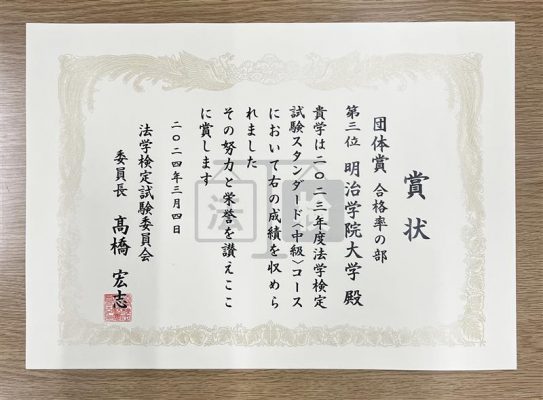 賞状
団体賞 合格率の部
第三位 明治学院大学 殿
貴学は二〇二三年度法学検定
試験スタンダード〈中級〉コース
において右の成績を収めら
れました
その努力と栄誉を讃えここ
に賞します
二〇二四年三月四日
法学検定試験委員会
委員長 髙橋 宏志
法 検